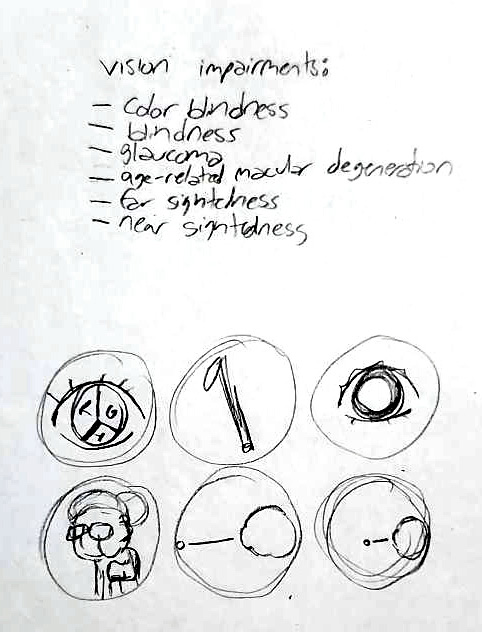 vision impairments:
- color blindness
- blindness
- glaucoma
- age-related macular degeneration
- far sightedness
- near sightedness
R G